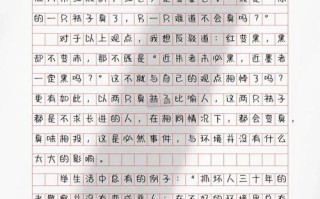 一只袜子臭了，另一只难道不会臭吗？”
对于以上观点，我想反驳道：红变黑，黑
却不变赤，那不既是“近朱者未必黑，近墨者
一定黑吗？”这不就与自己的观点相悖了吗？
更有如此，以两只臭袜子比喻人，这两只袜子
都是不求长进的人，在何种情况下，都会变臭，
臭味相投，这是必然事件，与环境并没有什么
太大的影响。
举生活中总有的例子：“抓坏人三十年的